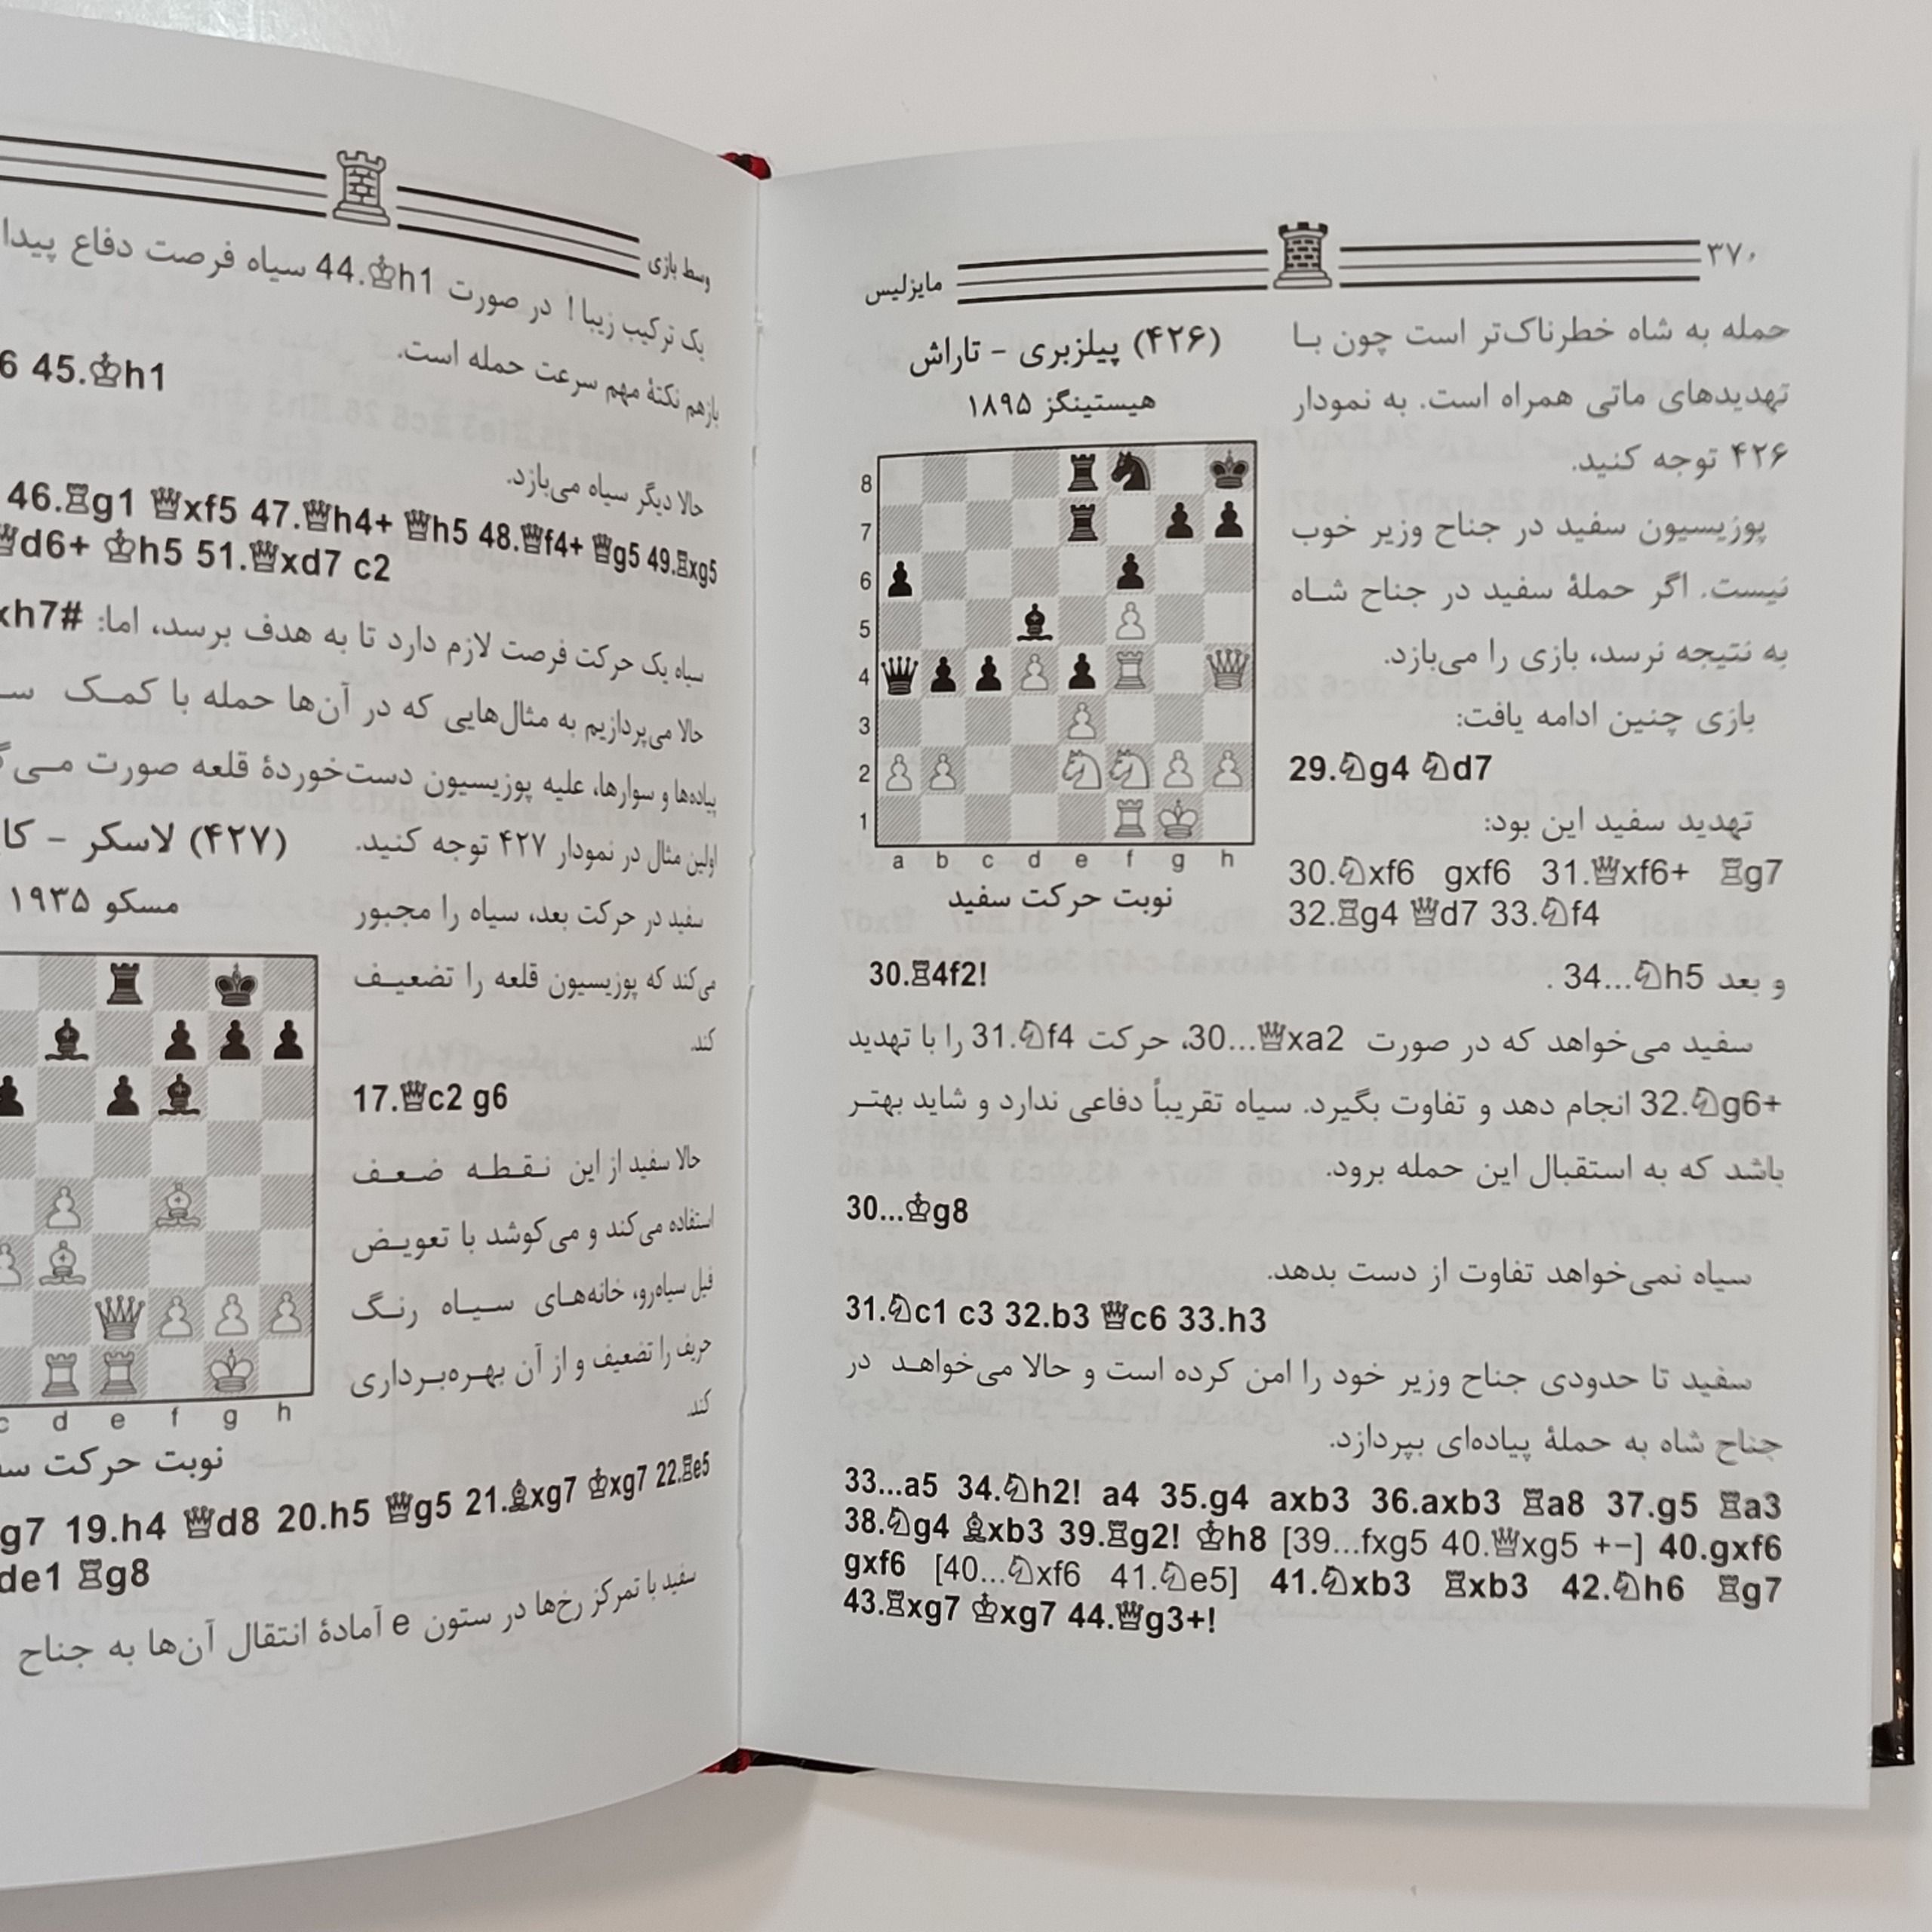 ۳۷۰
مایزلیس
حمله به شاه خطرناک‌تر است چون با
تهدیدهای ماتی همراه است. به نمودار
۴۲۶ توجه کنید.
پوزیسیون سفید در جناح وزیر خوب
نیست. اگر حملهٔ سفید در جناح شاه
به نتیجه نرسد، بازی را می‌بازد.
بازی چنین ادامه یافت:
29.♘g4 ♘d7
تهدید سفید این بود:
30.♘xf6 gxf6 31.♕xf6+ ♖g7
32.♖g4 ♕d7 33.♘f4
و بعد 34...♘h5 .
(۴۲۶) پیلزبری - تاراش
هیستینگز ۱۸۹۵
8
7
6
5
4
3
2
1
a b c d e f g h
نوبت حرکت سفید
30.♖4f2!
سفید می‌خواهد که در صورت 30...♕xa2، حرکت 31.♘f4 را با تهدید
32.♘g6+ انجام دهد و تفاوت بگیرد. سیاه تقریباً دفاعی ندارد و شاید بهتر
باشد که به استقبال این حمله برود.
30...♔g8
سیاه نمی‌خواهد تفاوت از دست بدهد.
31.♘c1 c3 32.b3 ♕c6 33.h3
سفید تا حدودی جناح وزیر خود را امن کرده است و حالا می‌خواهد در
جناح شاه به حملهٔ پیاده‌ای بپردازد.
33...a5 34.♘h2! a4 35.g4 axb3 36.axb3 ♖a8 37.g5 ♖a3
38.♘g4 ♗xb3 39.♖g2! ♔h8 [39...fxg5 40.♕xg5 +−] 40.gxf6
gxf6 [40...♘xf6 41.♘e5] 41.♘xb3 ♖xb3 42.♘h6 ♖g7
43.♖xg7 ♔xg7 44.♕g3+!
وسط بازی
یک ترکیب زیبا! در صورت 44.♔h1 سیاه فرصت دفاع پیدا
بازهم نکتهٔ مهم سرعت حمله است.
6 45.♔h1
حالا دیگر سیاه می‌بازد.
46.♖g1 ♕xf5 47.♕h4+ ♕h5 48.♕f4+ ♕g5 49.♖xg5
♕d6+ ♔h5 51.♕xd7 c2
سیاه یک حرکت فرصت لازم دارد تا به هدف برسد، اما: xh7#
حالا می‌پردازیم به مثال‌هایی که در آن‌ها حمله با کمک
پیاده‌ها و سوارها، علیه پوزیسیون دست‌خوردهٔ قلعه صورت
اولین مثال در نمودار ۴۲۷ توجه کنید.
سفید در حرکت بعد، سیاه را مجبور
می‌کند که پوزیسیون قلعه را تضعیف
کند.
17.♕c2 g6
حالا سفید از این نقطه ضعف
استفاده می‌کند و می‌کوشد با تعویض
فیل سیاه‌رو، خانه‌های سیاه رنگ
حریف را تضعیف و از آن بهره‌برداری
کند.
(۴۲۷) لاسکر -
مسکو ۱۹۳۵
c d e f g h
نوبت حرکت
g7 19.h4 ♕d8 20.h5 ♕g5 21.♗xg7 ♔xg7 22.♖e5
de1 ♖g8
سفید با تمرکز رخ‌ها در ستون e آمادهٔ انتقال آن‌ها به جناح